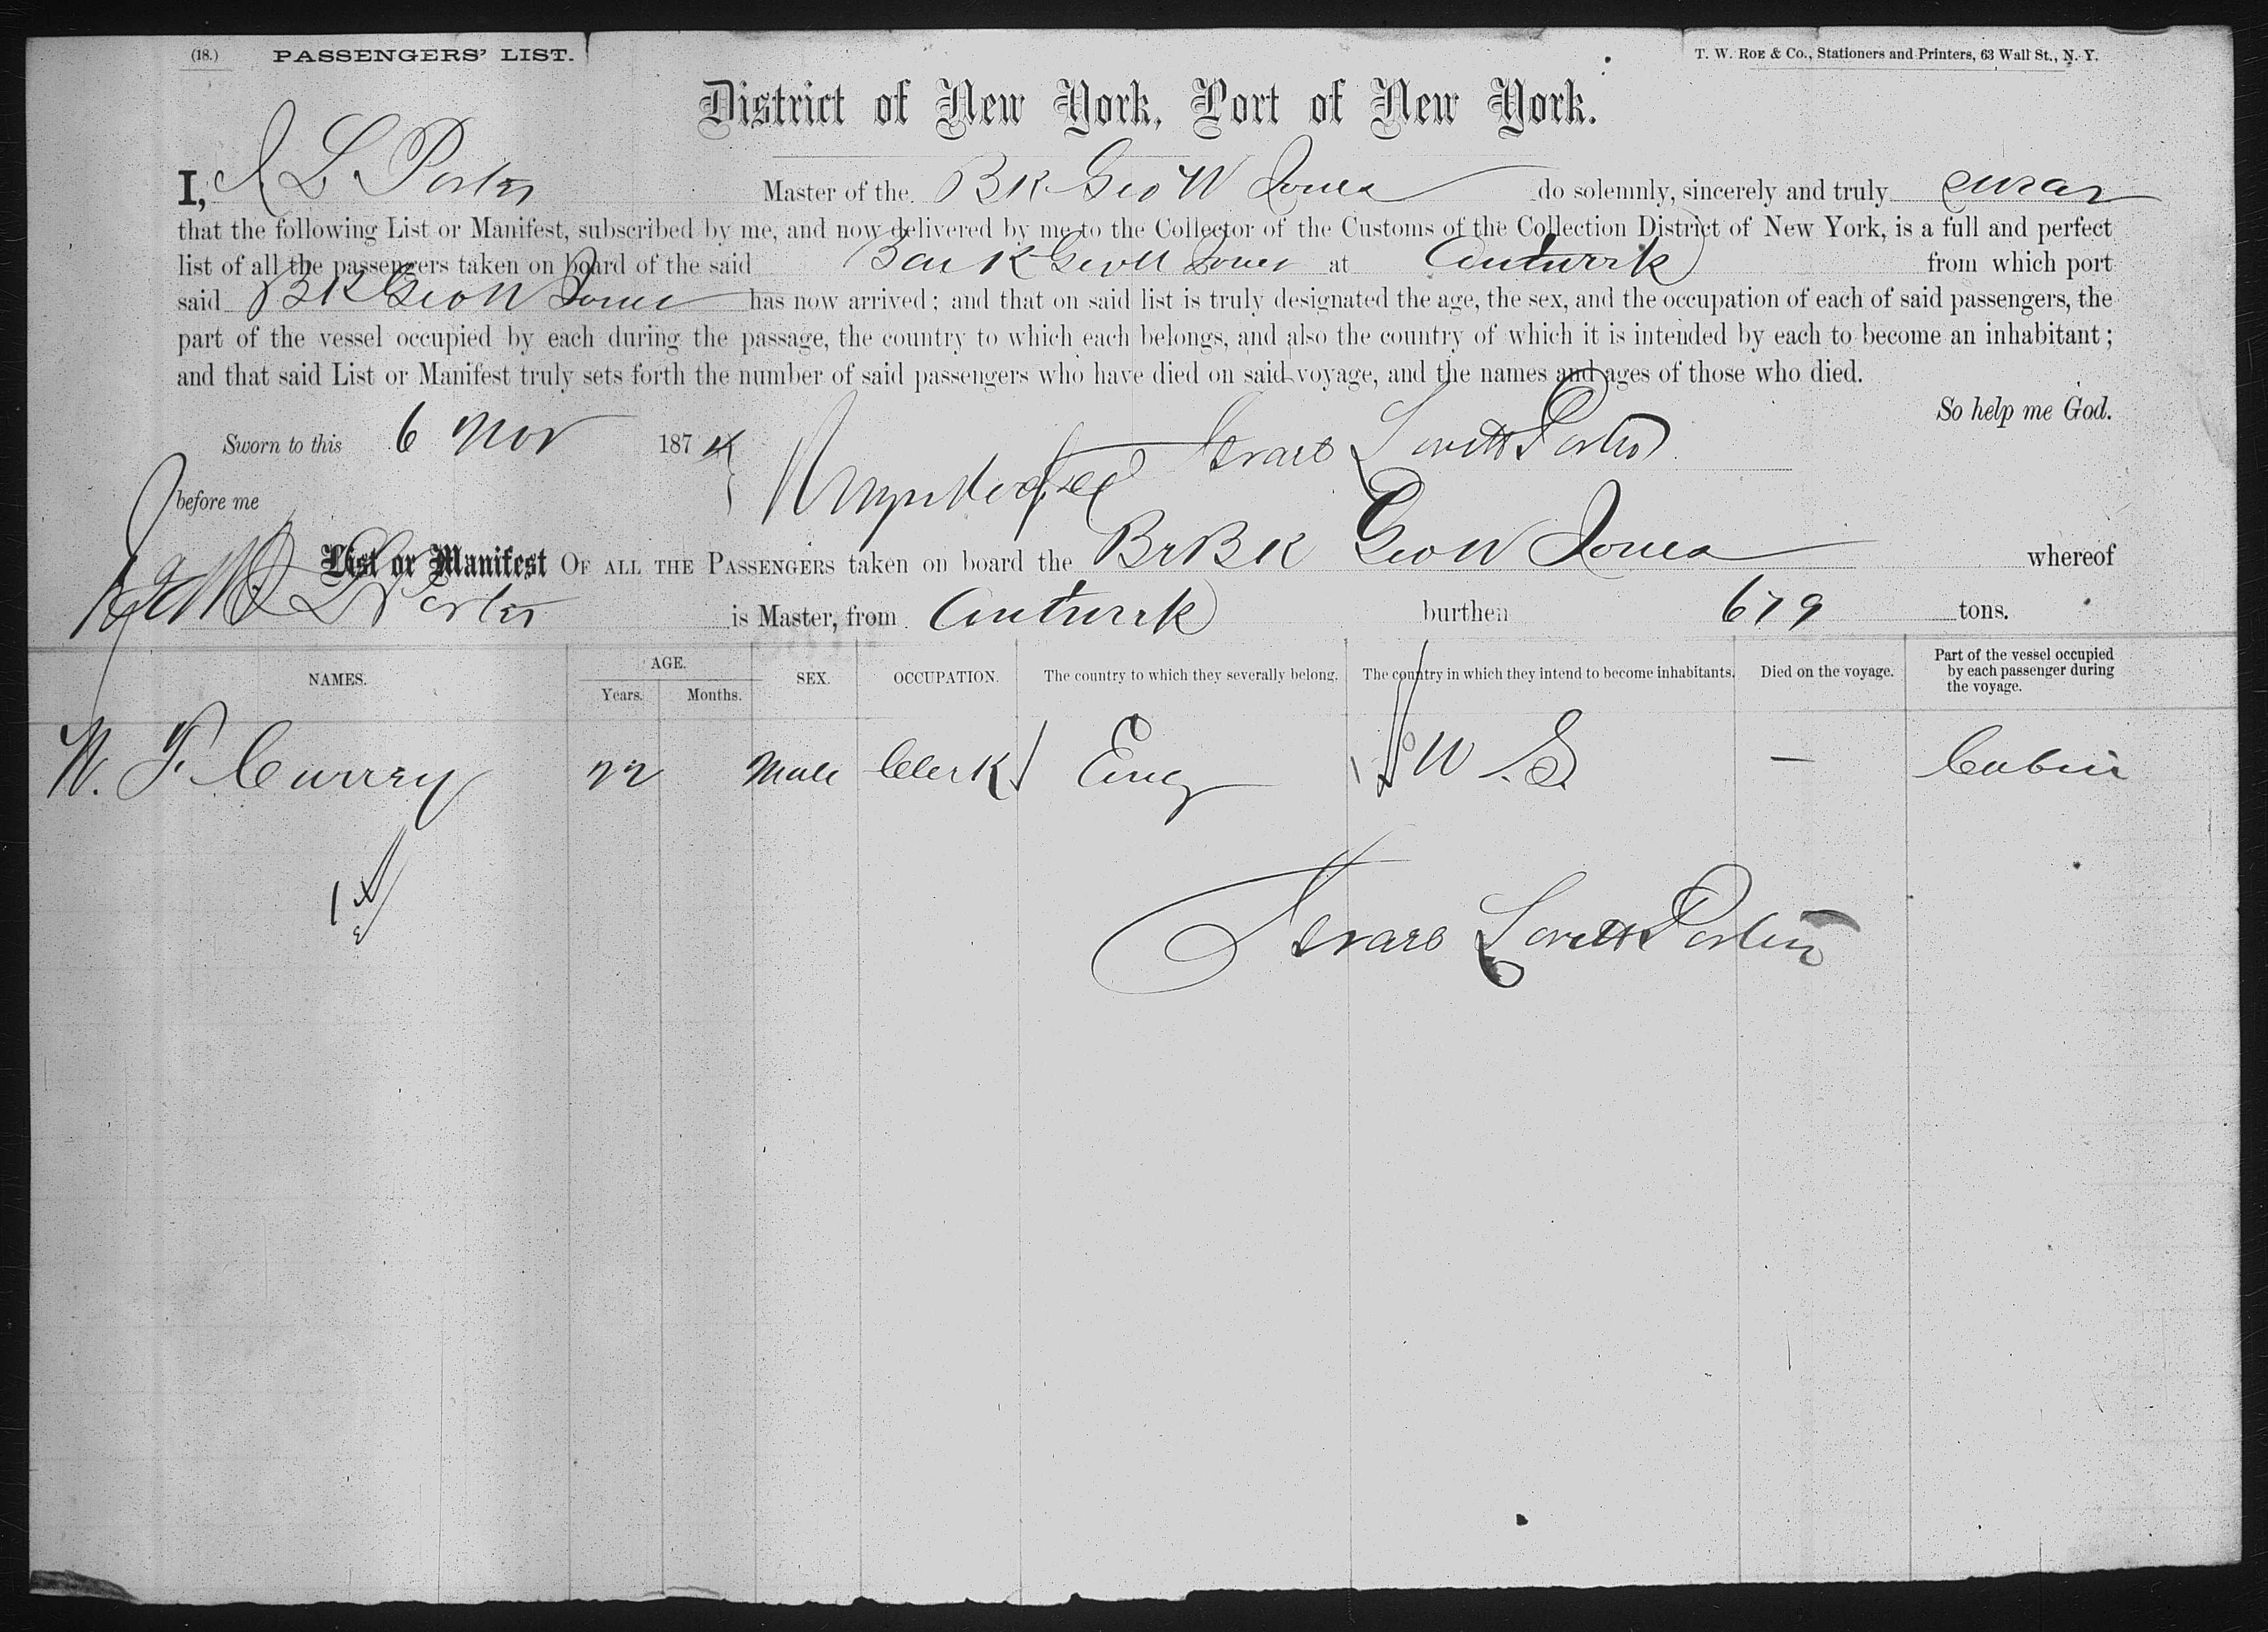 (18.) PASSENGERS' LIST.
T. W. ROE & Co., Stationers and Printers, 63 Wall St., N. Y.
District of New York, Port of New York.
I, I. L. Porter Master of the Bk Geo W Jones do solemnly, sincerely and truly swear
that the following List or Manifest, subscribed by me, and now delivered by me to the Collector of the Customs of the Collection District of New York, is a full and perfect
list of all the passengers taken on board of the said Bark Geo W Jones at Antwerp from which port
said Bk Geo W Jones has now arrived; and that on said list is truly designated the age, the sex, and the occupation of each of said passengers, the
part of the vessel occupied by each during the passage, the country to which each belongs, and also the country of which it is intended by each to become an inhabitant;
and that said List or Manifest truly sets forth the number of said passengers who have died on said voyage, and the names and ages of those who died.
So help me God.
Sworn to this 6 Nov 1874
Lovett Porter
before me
List or Manifest OF ALL THE PASSENGERS taken on board the Br Bk Geo W Jones whereof
L Porter is Master, from Antwerp burthen 679 tons.
NAMES. AGE. Years. Months. SEX. OCCUPATION. The country to which they severally belong. The country in which they intend to become inhabitants. Died on the voyage. Part of the vessel occupied by each passenger during the voyage.
W. F. Currey 22 Male Clerk Eng U.S. — Cabin
1
Lovett Porter